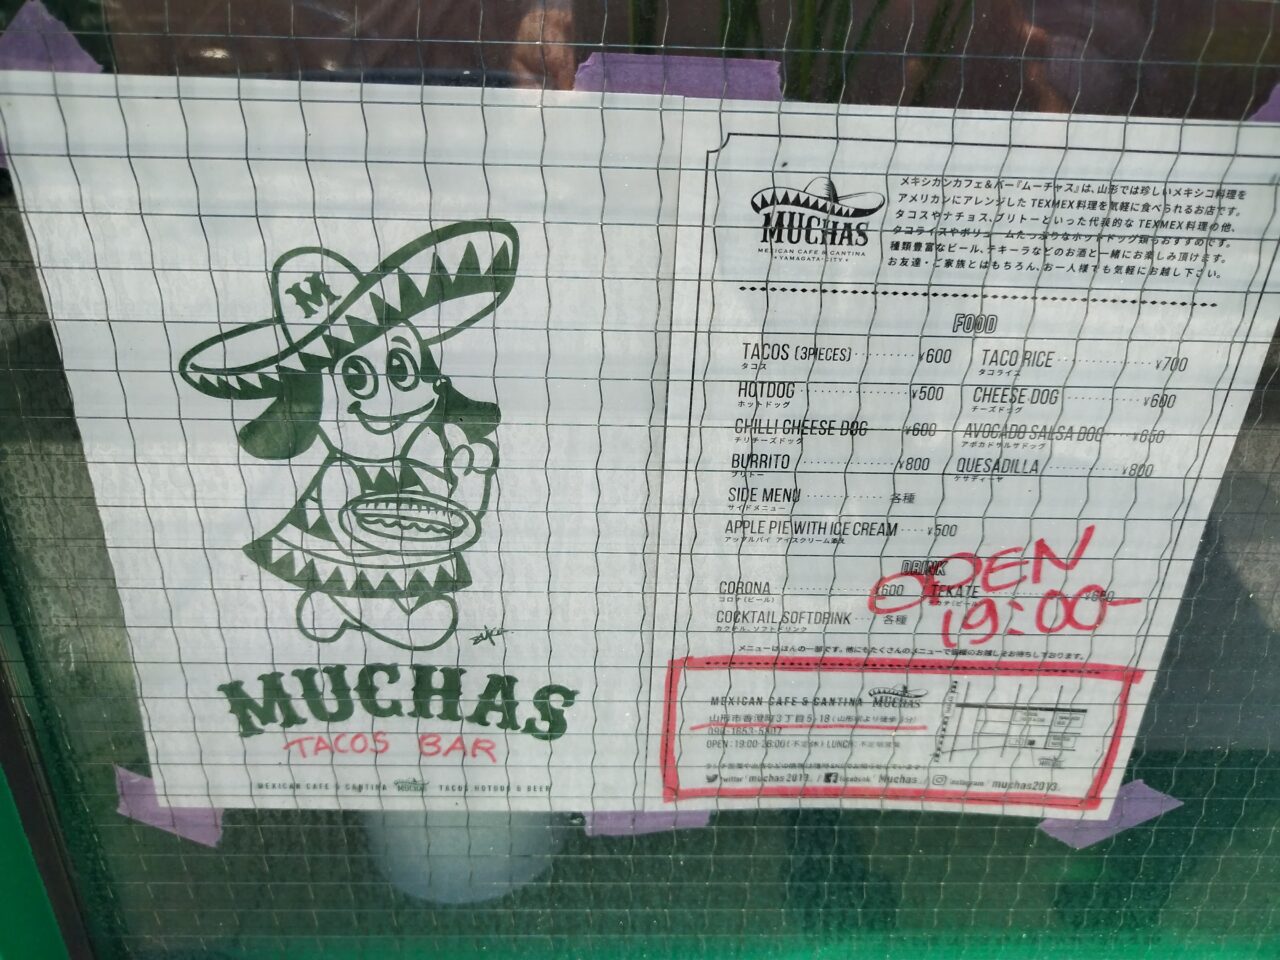 M
MUCHAS
TACOS BAR
MEXICAN CAFE & CANTINA MUCHAS TACOS HOTDOG & BEER
MUCHAS
MEXICAN CAFE & CANTINA
YAMAGATA CITY
メキシカンカフェ&バー『ムーチャス』は、山形では珍しいメキシコ料理を
アメリカンにアレンジしたTEXMEX料理を気軽に食べられるお店です。
タコスやナチョス、ブリトーといった代表的なTEXMEX料理の他、
タコライスやボリュームたっぷりなホットドッグ類もおすすめです。
種類豊富なビール、テキーラなどのお酒と一緒にお楽しみ頂けます。
お友達・ご家族とはもちろん、お一人様でも気軽にお越し下さい。
FOOD
TACOS (3PIECES) ¥600
タコス
TACO RICE ¥700
タコライス
HOTDOG ¥500
ホットドッグ
CHEESE DOG ¥600
チーズドッグ
CHILLI CHEESE DOG ¥600
チリチーズドッグ
AVOCADO SALSA DOG ¥650
アボカドサルサドッグ
BURRITO ¥800
ブリトー
QUESADILLA ¥800
ケサディーヤ
SIDE MENU 各種
サイドメニュー
APPLE PIE WITH ICE CREAM ¥500
アップルパイ アイスクリーム添え
DRINK
OPEN
19:00-
CORONA ¥600
コロナ(ビール)
TEKATE
テカテ(ビール)
COCKTAIL, SOFTDRINK 各種
カクテル、ソフトドリンク
メニューはほんの一部です。他にもたくさんのメニューで皆様のお越しをお待ちしております。
MEXICAN CAFE & CANTINA MUCHAS
山形市香澄町3丁目5-18
OPEN: 19:00-26:00(不定休) LUNCH:
Twitter muchas2013. / facebook Muchas / instagram muchas2013.